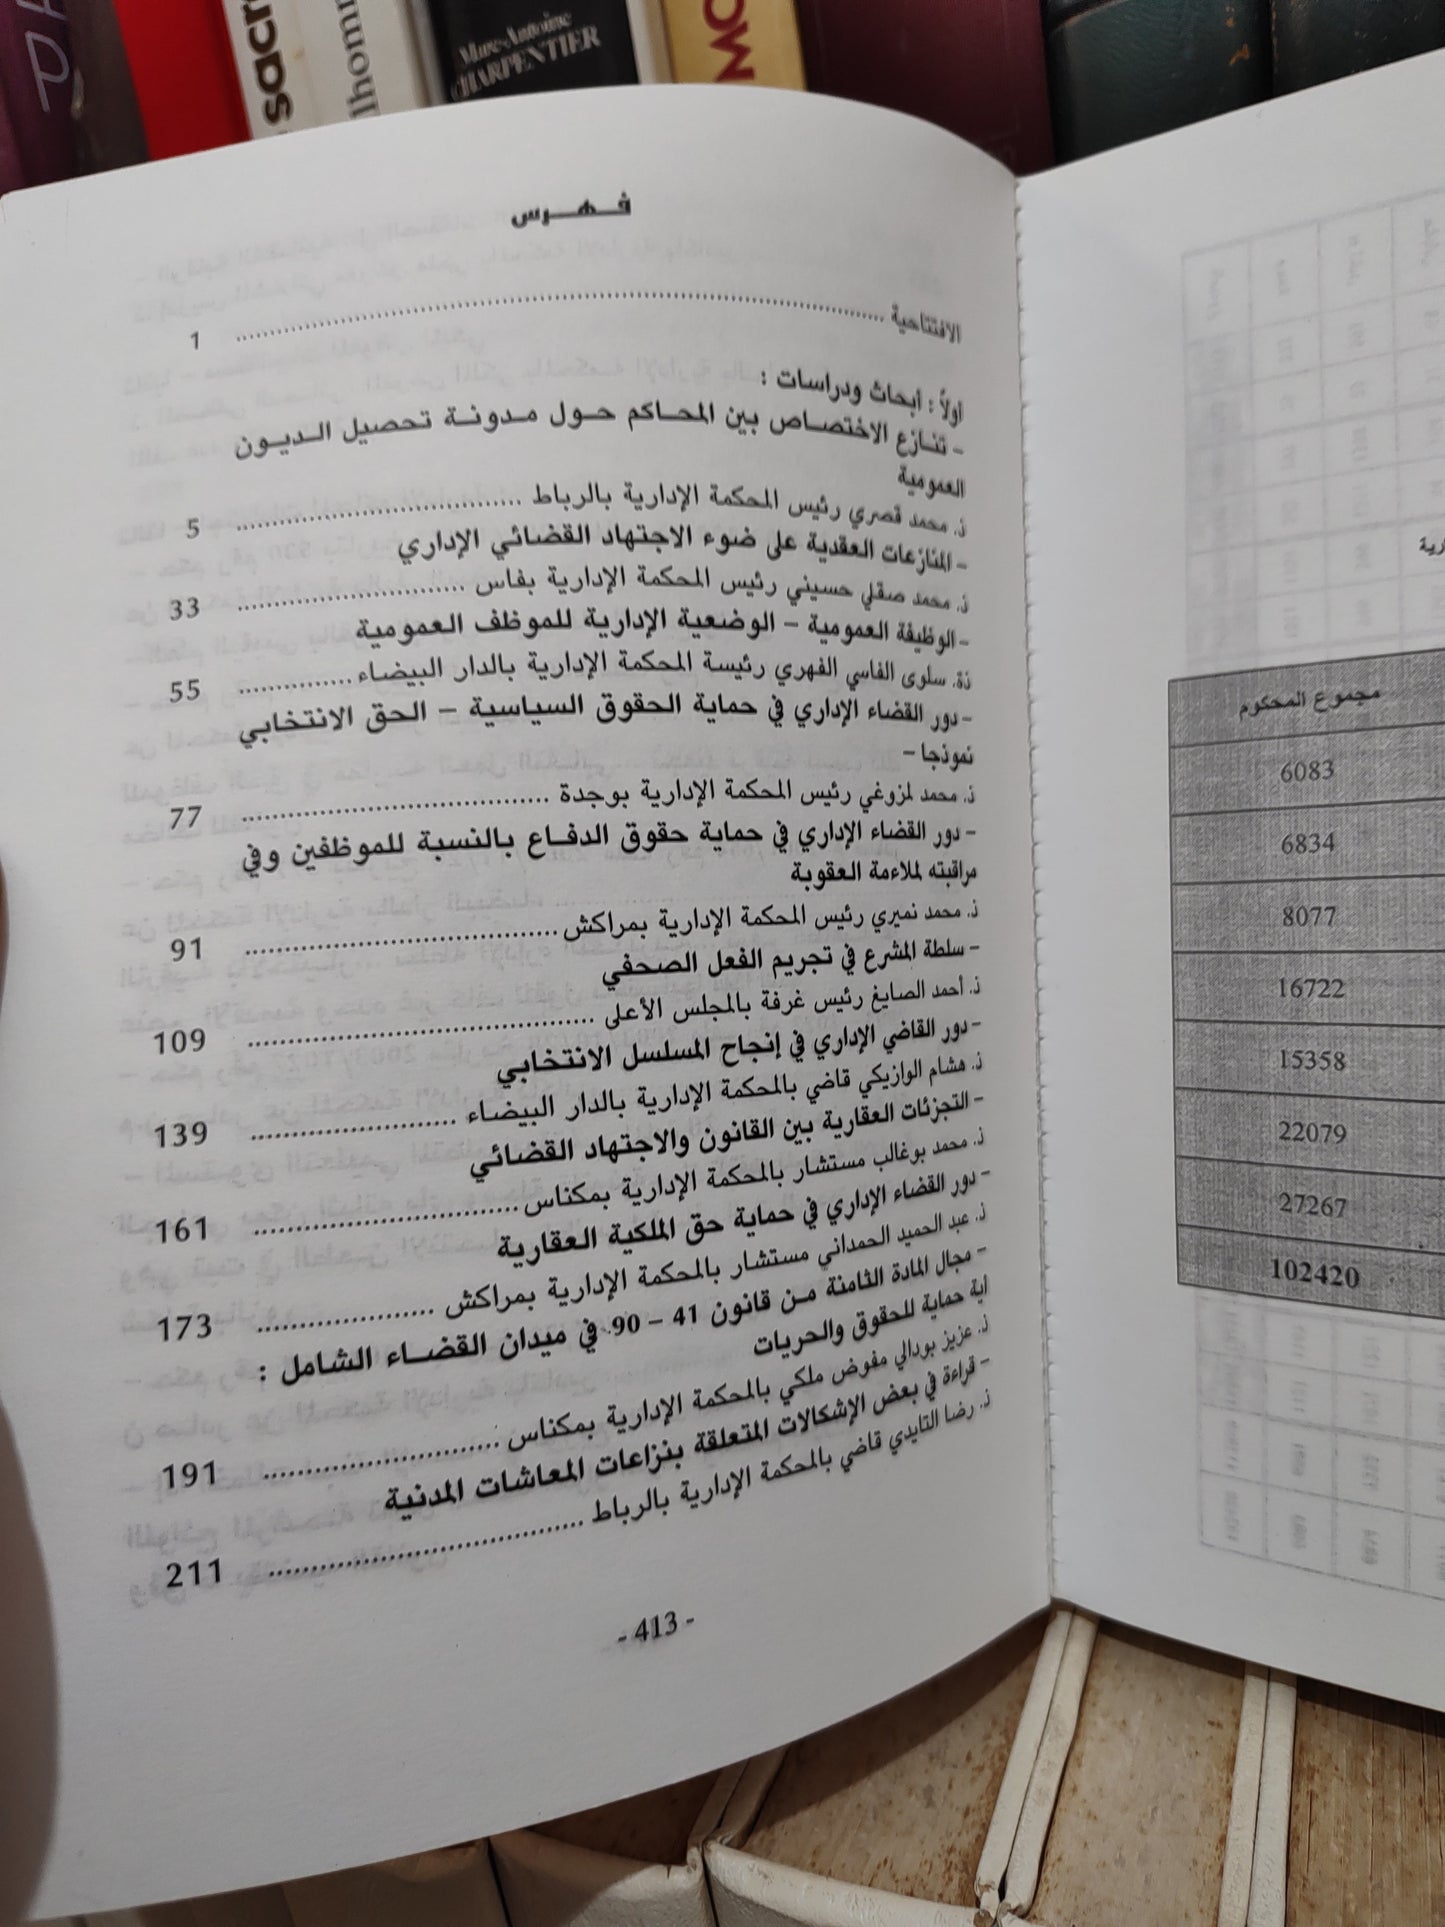 sacr
lhom
Marc-Antoine
CHARPENTIER
MO
فهرس
الافتتاحية ........ 1
أولاً : أبحاث ودراسات :
- تنازع الاختصاص بين المحاكم حول مدونة تحصيل الديون
العمومية
ذ. محمد قصري رئيس المحكمة الإدارية بالرباط ........ 5
- المنازعات العقدية على ضوء الاجتهاد القضائي الإداري
ذ. محمد صقلي حسيني رئيس المحكمة الإدارية بفاس ........ 33
- الوظيفة العمومية – الوضعية الإدارية للموظف العمومية
ذة. سلوى الفاسي الفهري رئيسة المحكمة الإدارية بالدار البيضاء ........ 55
- دور القضاء الإداري في حماية الحقوق السياسية – الحق الانتخابي
نموذجا –
ذ. محمد لمزوغي رئيس المحكمة الإدارية بوجدة ........ 77
- دور القضاء الإداري في حماية حقوق الدفاع بالنسبة للموظفين وفي
مراقبته لملاءمة العقوبة
ذ. محمد نميري رئيس المحكمة الإدارية بمراكش ........ 91
- سلطة المشرع في تجريم الفعل الصحفي
ذ. أحمد الصايغ رئيس غرفة بالمجلس الأعلى ........ 109
- دور القاضي الإداري في إنجاح المسلسل الانتخابي
ذ. هشام الوازيكي قاضي بالمحكمة الإدارية بالدار البيضاء ........ 139
- التجزئات العقارية بين القانون والاجتهاد القضائي
ذ. محمد بوغالب مستشار بالمحكمة الإدارية بمكناس ........ 161
- دور القضاء الإداري في حماية حق الملكية العقارية
ذ. عبد الحميد الحمداني مستشار بالمحكمة الإدارية بمراكش ........ 173
- مجال المادة الثامنة من قانون 41 – 90 في ميدان القضاء الشامل :
اية حماية للحقوق والحريات
ذ. عزيز بودالي مفوض ملكي بالمحكمة الإدارية بمكناس ........ 191
- قراءة في بعض الإشكالات المتعلقة بنزاعات المعاشات المدنية
ذ. رضا التايدي قاضي بالمحكمة الإدارية بالرباط ........ 211
- 413 -
مجموع المحكوم
6083
6834
8077
16722
15358
22079
27267
102420